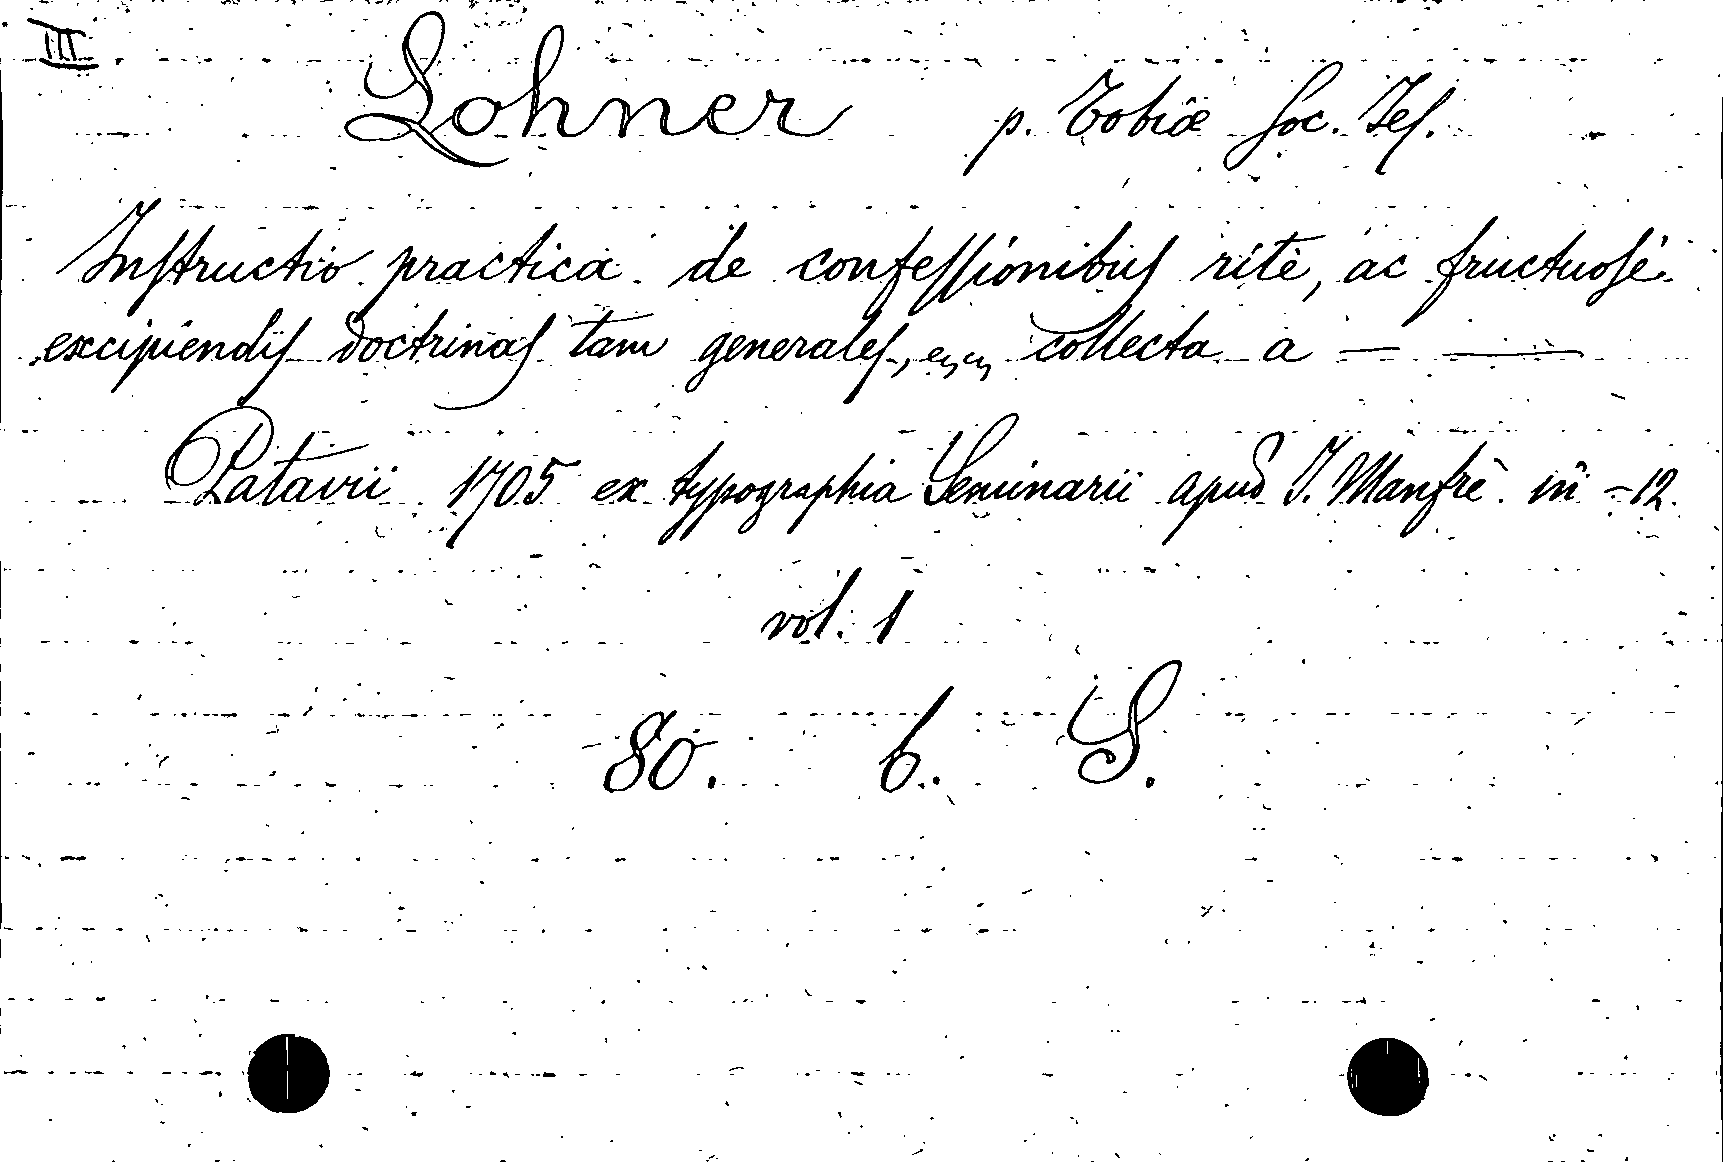 III
Lohner p. Tobiæ Soc. Jes.
Instructio practica de confessionibus ritè, ac fructuosè
excipiendis doctrinas tam generales, collecta a — —
Patavii 1705 ex typographia Seminarii apud J. Manfrè in -12.
vol. 1
80. b. S.